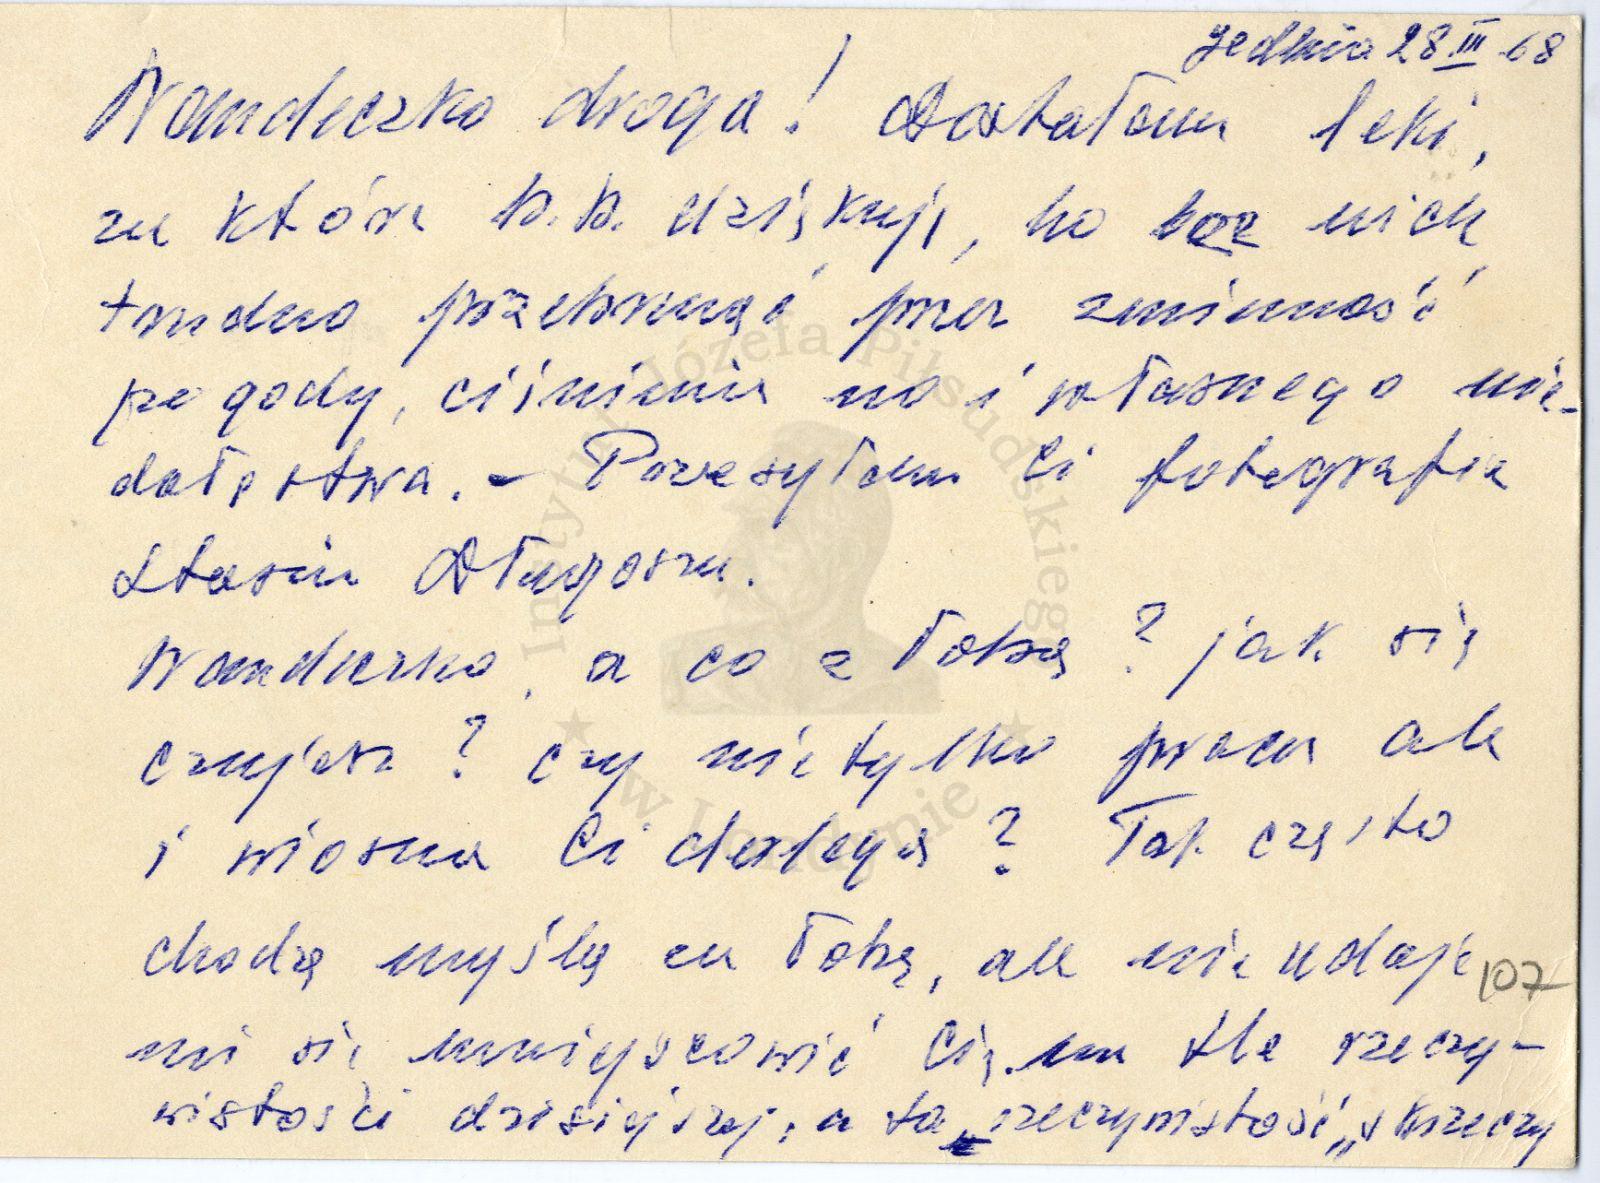 Jedlnia 28 III 68
Wandeczko droga! Dostałam leki,
za które b. b. dziękuję, bo bez nich
trudno przebrnąć przez zmienność
pogody, ciśnienia no i własnego nie-
dołęstwa. – Przesyłam Ci fotografię
Stasia Długosza.
Wandeczko, a co z Tobą? jak się
czujesz? czy nie tylko praca ale
i wiosna Ci dolega? Tak często
chodzę myślą za Tobą, ale nie udaje
mi się umiejscowić Cię na tle rzeczy-
wistości dzisiejszej, a ta „rzeczywistość” skrzeczy
107
Instytut Józefa Piłsudskiego
w Londynie